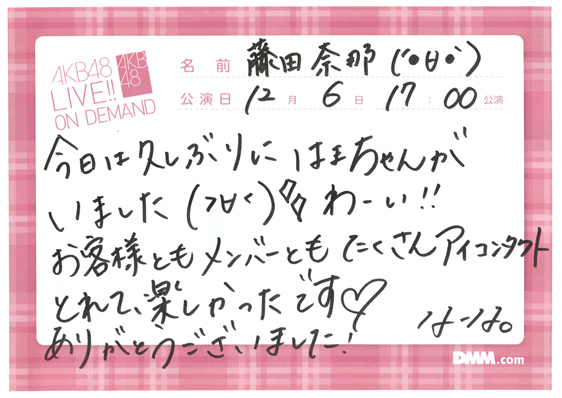 AKB48
LIVE!!
ON DEMAND
AKB
48
名前 藤田奈那 (´●ㅂ●`)
公演日 12月 6日 17:00公演
今日は久しぶりに はまちゃんが
いました (>∀<) わーい!!
お客様ともメンバーとも たくさんアイコンタクト
とれて、楽しかったです♡
ありがとうございました!
なーな。
DMM.com